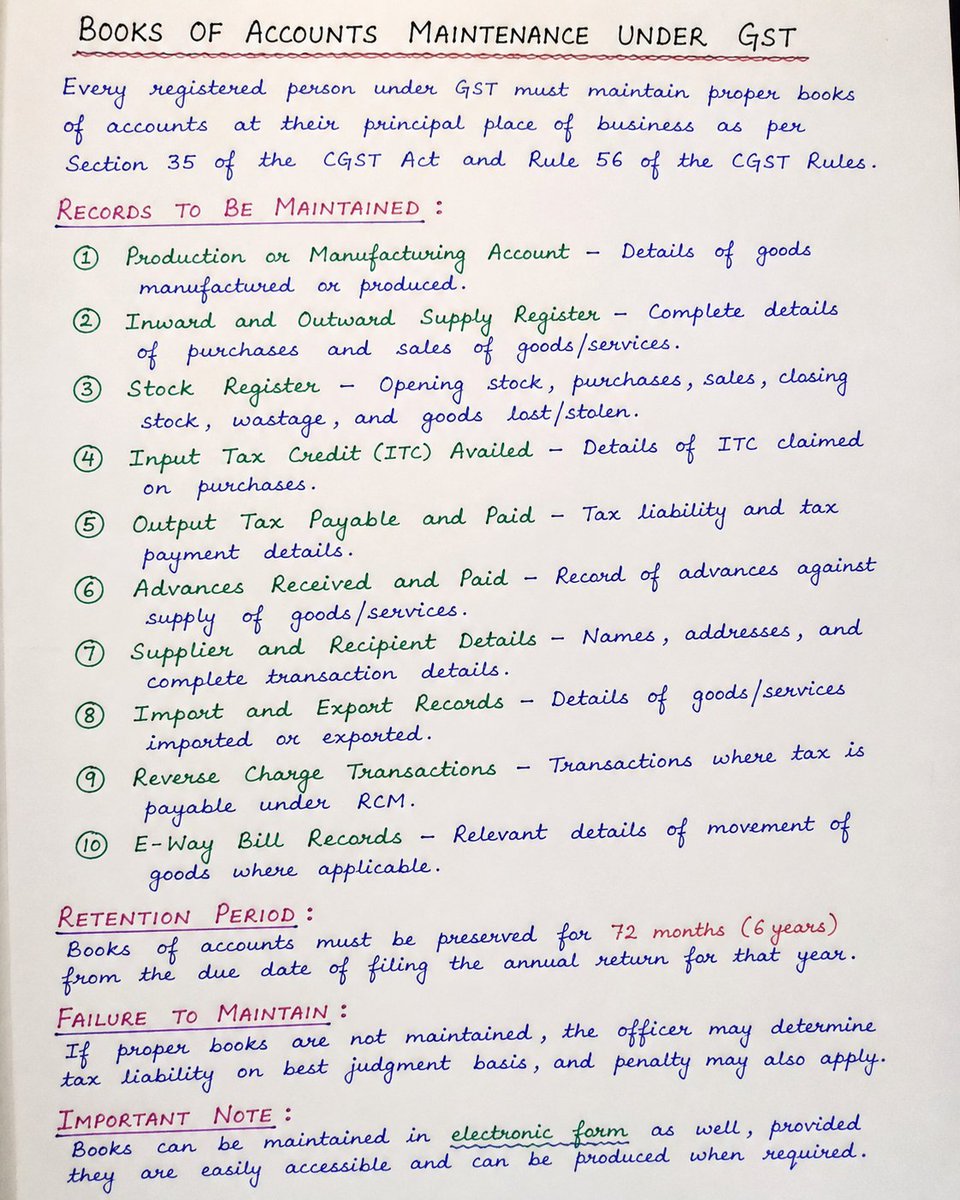 BOOKS OF ACCOUNTS MAINTENANCE UNDER GST
Every registered person under GST must maintain proper books
of accounts at their principal place of business as per
Section 35 of the CGST Act and Rule 56 of the CGST Rules.
RECORDS TO BE MAINTAINED :
① Production or Manufacturing Account – Details of goods
manufactured or produced.
② Inward and Outward Supply Register – Complete details
of purchases and sales of goods/services.
③ Stock Register – Opening stock, purchases, sales, closing
stock, wastage, and goods lost/stolen.
④ Input Tax Credit (ITC) Availed – Details of ITC claimed
on purchases.
⑤ Output Tax Payable and Paid – Tax liability and tax
payment details.
⑥ Advances Received and Paid – Record of advances against
supply of goods/services.
⑦ Supplier and Recipient Details – Names, addresses, and
complete transaction details.
⑧ Import and Export Records – Details of goods/services
imported or exported.
⑨ Reverse Charge Transactions – Transactions where tax is
payable under RCM.
⑩ E-Way Bill Records – Relevant details of movement of
goods where applicable.
RETENTION PERIOD :
Books of accounts must be preserved for 72 months (6 years)
from the due date of filing the annual return for that year.
FAILURE TO MAINTAIN :
If proper books are not maintained, the officer may determine
tax liability on best judgment basis, and penalty may also apply.
IMPORTANT NOTE :
Books can be maintained in electronic form as well, provided
they are easily accessible and can be produced when required.